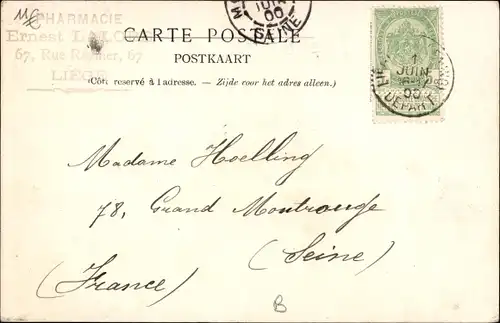 M£
PHARMACIE
Ernest
67, Rue 67
LIÉGE
JUIN
00
SEINE
CARTE POSTALE
POSTKAART
(Côté reservé à l'adresse. — Zijde voor het adres alleen.)
1
JUIN
00
DÉPART
Madame Hoelling
78, Grand Montrouge
(Seine)
(France)
B